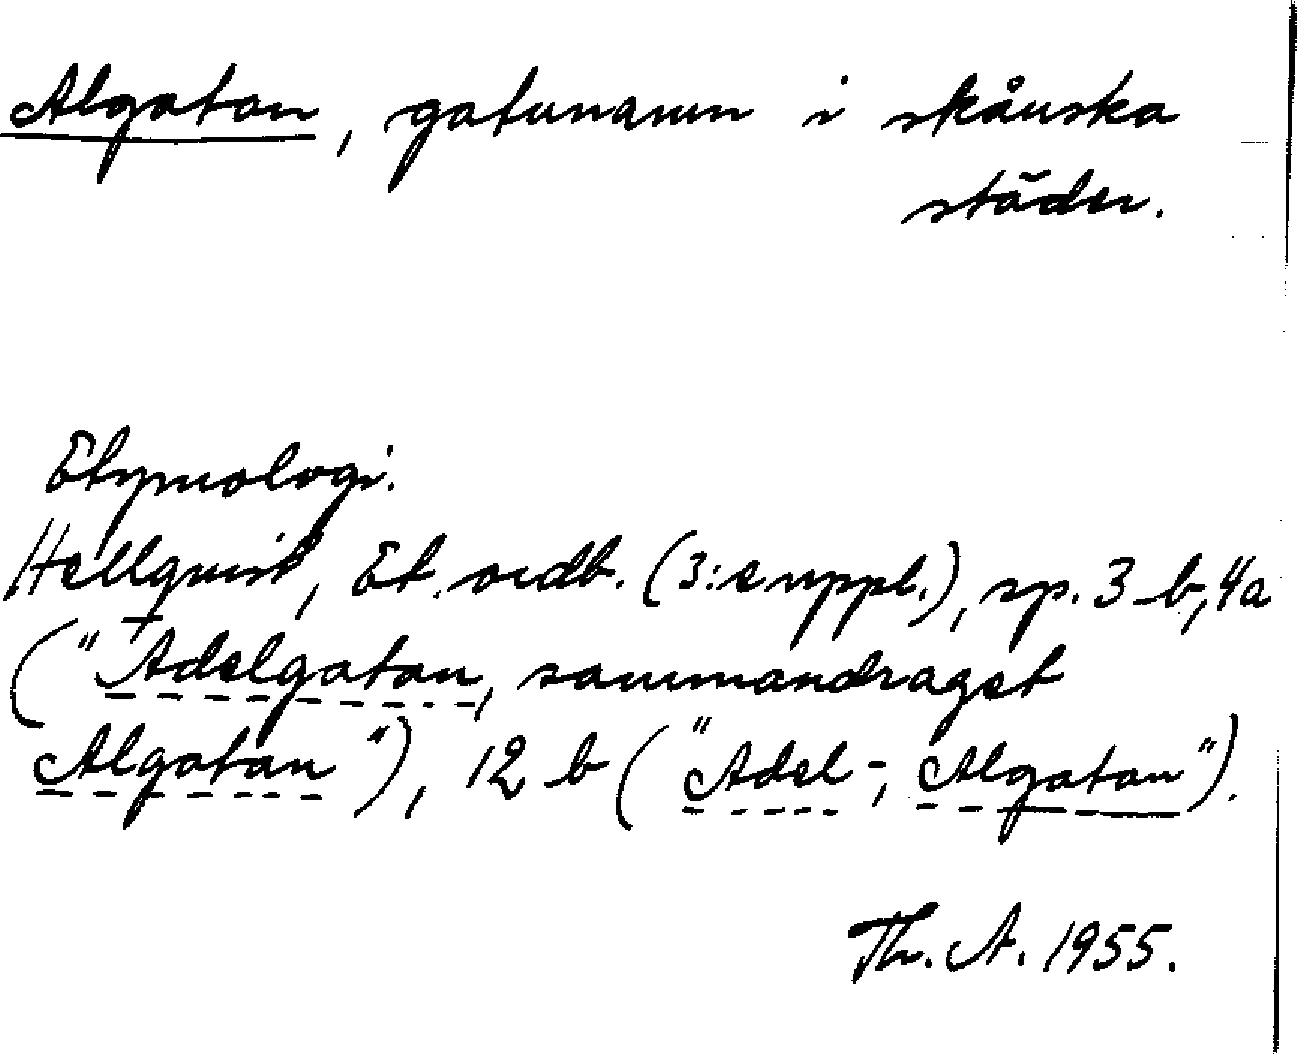 Algatan, gatunamn i skånska
städer.
Etymologi.
Hellquist, Et. ordb. (3:e uppl.), sp. 3 b, 4a
("Adelgatan, sammandraget
Algatan"), 12 b ("Adel-, Algatan").
Th. A. 1955.